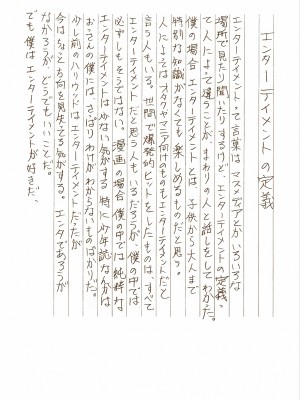 エンターテイメントの定義
エンターテイメントって言葉は、マスメディアとかいろいろな
場所で見たり聞いたりするけど、エンターテイメントの定義っ
て人によって違うことが、まわりの人と話しをしてわかった。
僕の場合エンターテイメントとは、子供から大人まで
特別な知識がなくても楽しめるものだと思う。
人によってはオタクやマニア向けのものもエンターテイメントだと
言う人もいる。世間で爆発的ヒットをしたものは、すべて
エンターテイメントだと思う人もいるだろうが、僕の中では
必ずしもそうではない。漫画の場合、僕の中では純粋な
エンターテイメントは少ない気がする。特に少年誌なんかは
おっさんの僕には、さっぱりわけがわからないものばかりだ。
少し前のハリウッドはエンターテイメントだったが
今はちょっと方向を見失ってる気がする。エンタであろうが
なかろうが、どうでもいいことだ。
でも僕はエンターテイメントが好きだ、